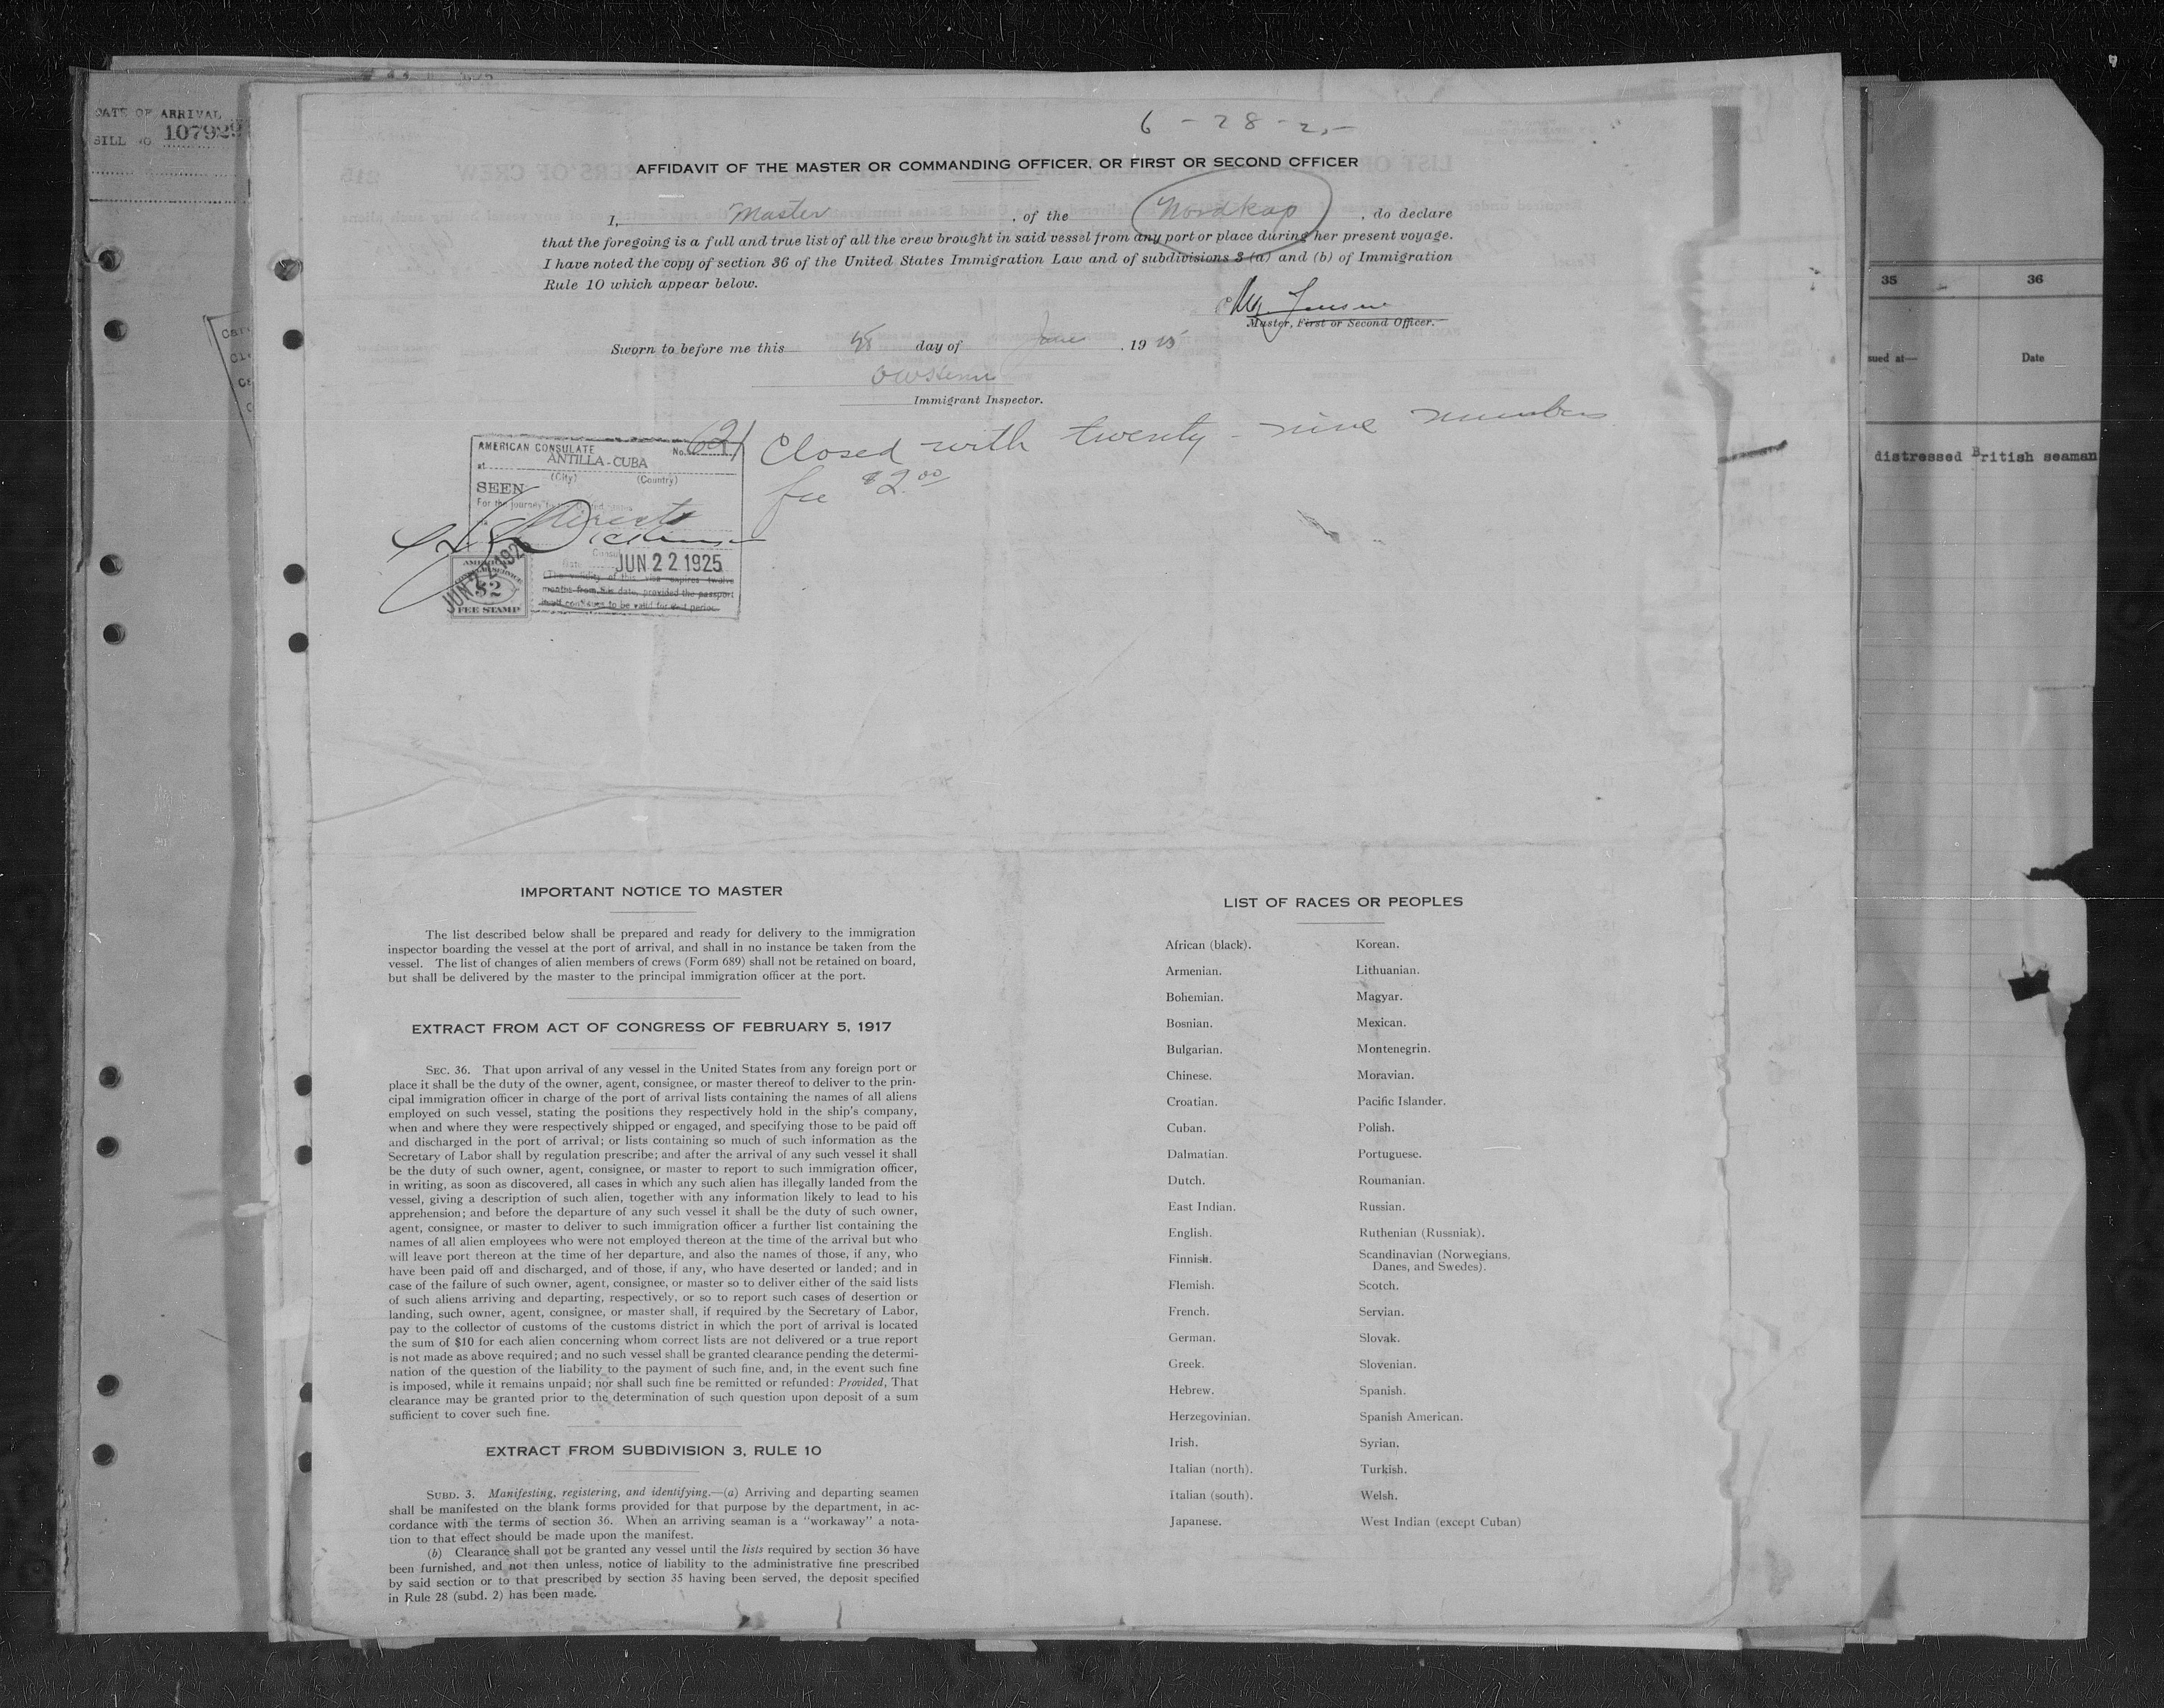 DATE OF ARRIVAL
BILL NO 107929
6-28-25
AFFIDAVIT OF THE MASTER OR COMMANDING OFFICER, OR FIRST OR SECOND OFFICER
I, Master, of the Nordkap, do declare
that the foregoing is a full and true list of all the crew brought in said vessel from any port or place during her present voyage.
I have noted the copy of section 36 of the United States Immigration Law and of subdivisions 3 (a) and (b) of Immigration
Rule 10 which appear below.
Master, First or Second Officer.
Sworn to before me this 28 day of June, 1925
Immigrant Inspector.
AMERICAN CONSULATE No. 621
at ANTILLA-CUBA
(City) (Country)
SEEN
For the journey to the United States
Direct
Consul
Date JUN 22 1925
(The validity of this visa expires twelve
months from this date, provided the passport
itself continues to be valid for that period.
JUN 22 1925
AMERICAN
$2
FEE STAMP
Closed with twenty-nine members
fee $2.00
35 36
sued at— Date
distressed British seaman
IMPORTANT NOTICE TO MASTER
The list described below shall be prepared and ready for delivery to the immigration
inspector boarding the vessel at the port of arrival, and shall in no instance be taken from the
vessel. The list of changes of alien members of crews (Form 689) shall not be retained on board,
but shall be delivered by the master to the principal immigration officer at the port.
EXTRACT FROM ACT OF CONGRESS OF FEBRUARY 5, 1917
SEC. 36. That upon arrival of any vessel in the United States from any foreign port or
place it shall be the duty of the owner, agent, consignee, or master thereof to deliver to the prin-
cipal immigration officer in charge of the port of arrival lists containing the names of all aliens
employed on such vessel, stating the positions they respectively hold in the ship's company,
when and where they were respectively shipped or engaged, and specifying those to be paid off
and discharged in the port of arrival; or lists containing so much of such information as the
Secretary of Labor shall by regulation prescribe; and after the arrival of any such vessel it shall
be the duty of such owner, agent, consignee, or master to report to such immigration officer,
in writing, as soon as discovered, all cases in which any such alien has illegally landed from the
vessel, giving a description of such alien, together with any information likely to lead to his
apprehension; and before the departure of any such vessel it shall be the duty of such owner,
agent, consignee, or master to deliver to such immigration officer a further list containing the
names of all alien employees who were not employed thereon at the time of the arrival but who
will leave port thereon at the time of her departure, and also the names of those, if any, who
have been paid off and discharged, and of those, if any, who have deserted or landed; and in
case of the failure of such owner, agent, consignee, or master so to deliver either of the said lists
of such aliens arriving and departing, respectively, or so to report such cases of desertion or
landing, such owner, agent, consignee, or master shall, if required by the Secretary of Labor,
pay to the collector of customs of the customs district in which the port of arrival is located
the sum of $10 for each alien concerning whom correct lists are not delivered or a true report
is not made as above required; and no such vessel shall be granted clearance pending the determi-
nation of the question of the liability to the payment of such fine, and, in the event such fine
is imposed, while it remains unpaid; nor shall such fine be remitted or refunded: Provided, That
clearance may be granted prior to the determination of such question upon deposit of a sum
sufficient to cover such fine.
EXTRACT FROM SUBDIVISION 3, RULE 10
SUBD. 3. Manifesting, registering, and identifying.—(a) Arriving and departing seamen
shall be manifested on the blank forms provided for that purpose by the department, in ac-
cordance with the terms of section 36. When an arriving seaman is a "workaway" a nota-
tion to that effect should be made upon the manifest.
(b) Clearance shall not be granted any vessel until the lists required by section 36 have
been furnished, and not then unless, notice of liability to the administrative fine prescribed
by said section or to that prescribed by section 35 having been served, the deposit specified
in Rule 28 (subd. 2) has been made.
LIST OF RACES OR PEOPLES
African (black).
Armenian.
Bohemian.
Bosnian.
Bulgarian.
Chinese.
Croatian.
Cuban.
Dalmatian.
Dutch.
East Indian.
English.
Finnish.
Flemish.
French.
German.
Greek.
Hebrew.
Herzegovinian.
Irish.
Italian (north).
Italian (south).
Japanese.
Korean.
Lithuanian.
Magyar.
Mexican.
Montenegrin.
Moravian.
Pacific Islander.
Polish.
Portuguese.
Roumanian.
Russian.
Ruthenian (Russniak).
Scandinavian (Norwegians,
Danes, and Swedes).
Scotch.
Servian.
Slovak.
Slovenian.
Spanish.
Spanish American.
Syrian.
Turkish.
Welsh.
West Indian (except Cuban)